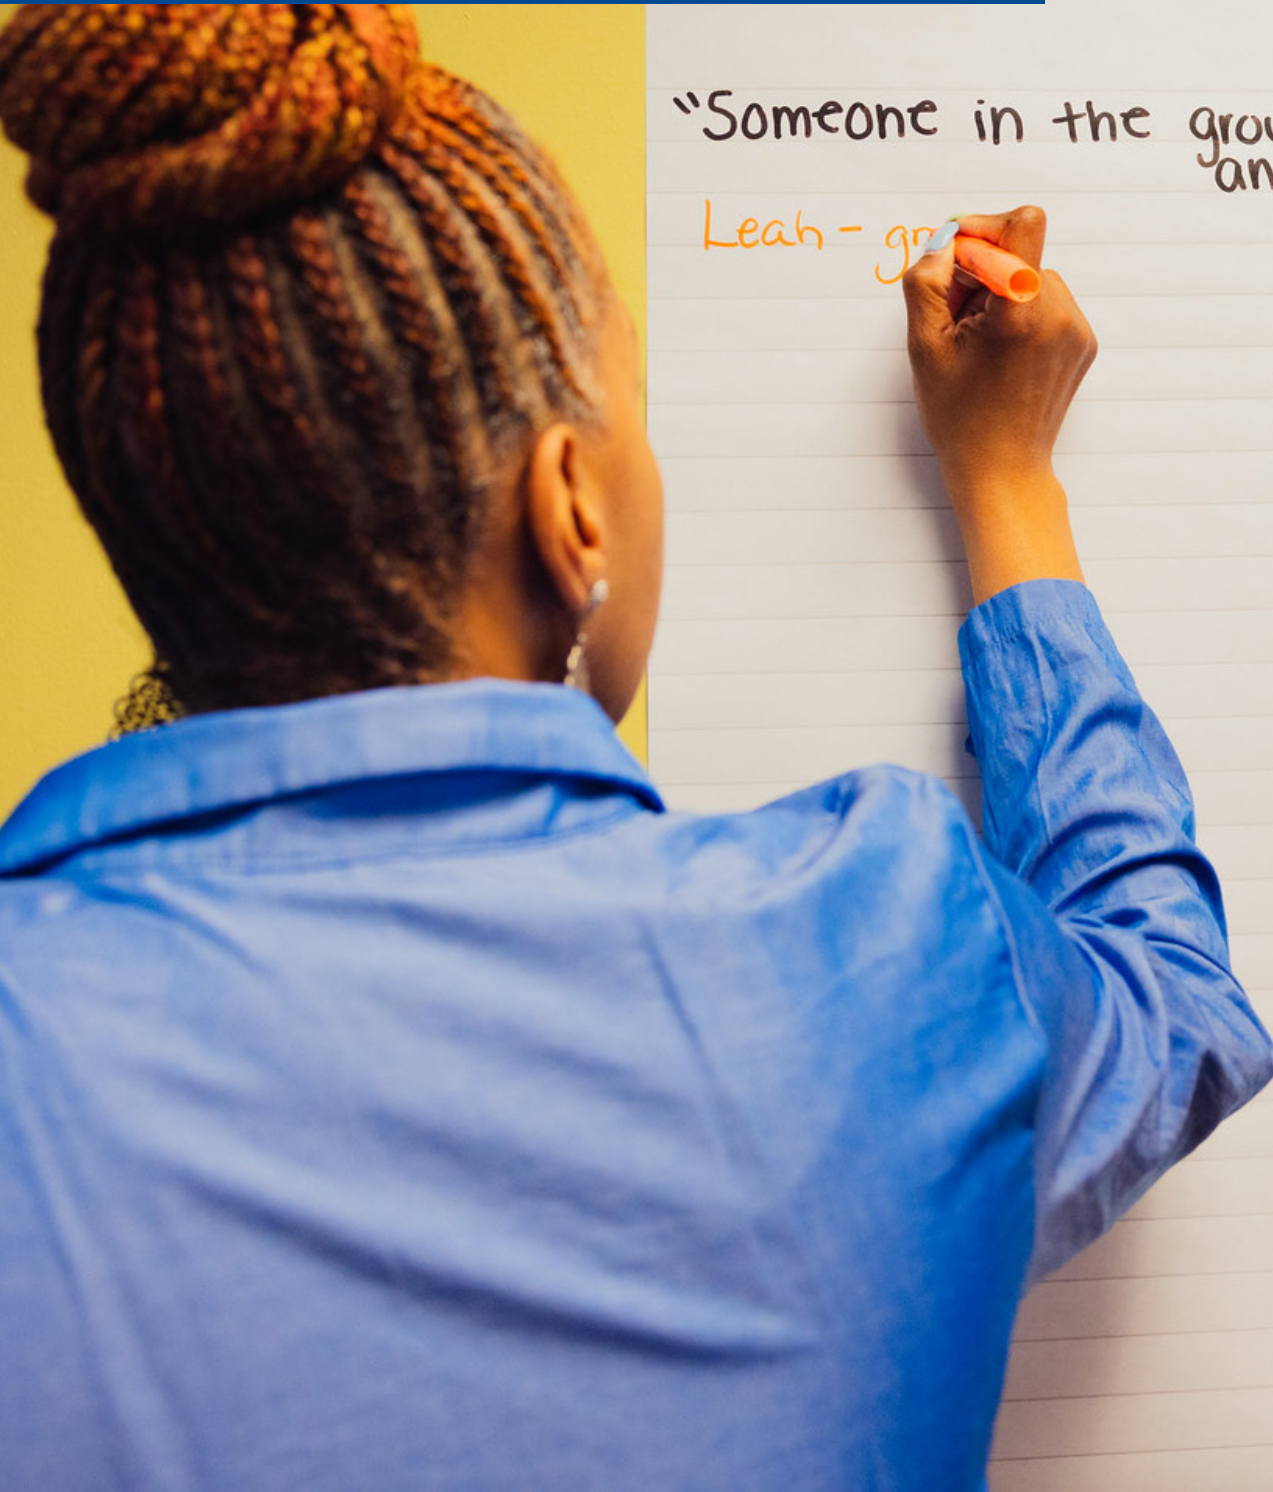 "Someone in the grou
an
Leah - gr